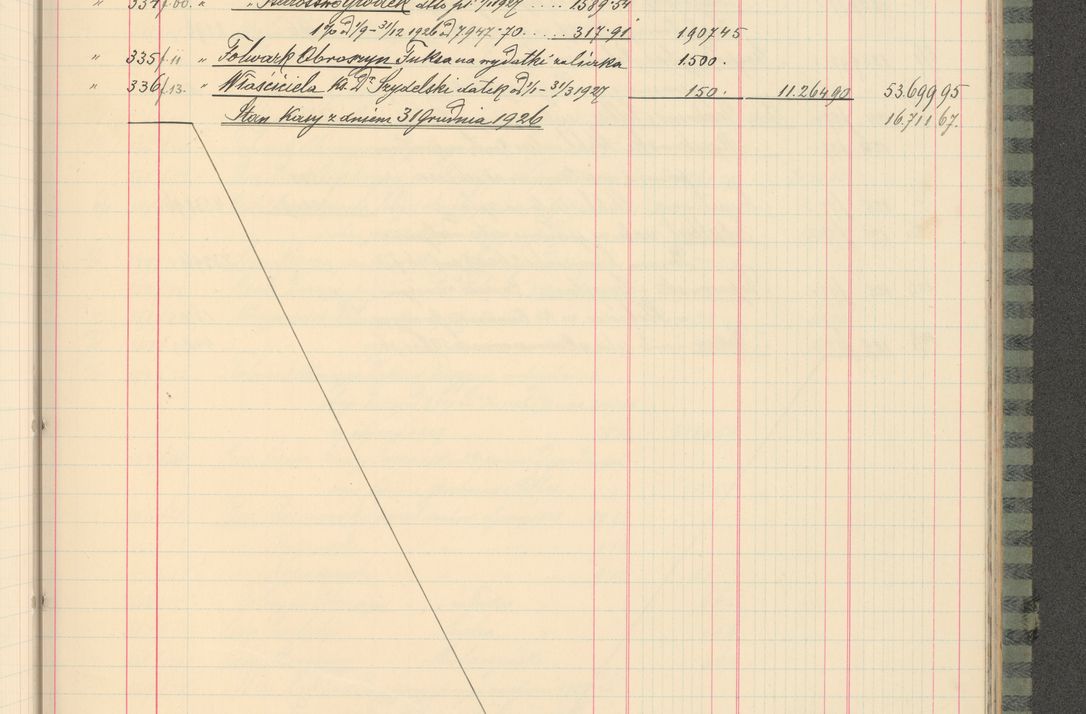 " 334/60. " " Gródek dtto pr. 1/1 1927 .... 1589·54
1% od 1/9 - 31/12 1926 od 7947·70 ..... 317·91 1907 45
" 335/11 " Folwark Obroszyn Fuksa na wydatki zaliczka 1.500.
" 336/13. " Właściciela Ks. Dr. Szydelski od 1/1 - 31/3 1927 150. 11.264 90 53.699 95
Stan Kasy z dniem 31 Grudnia 1926 16.711 67.